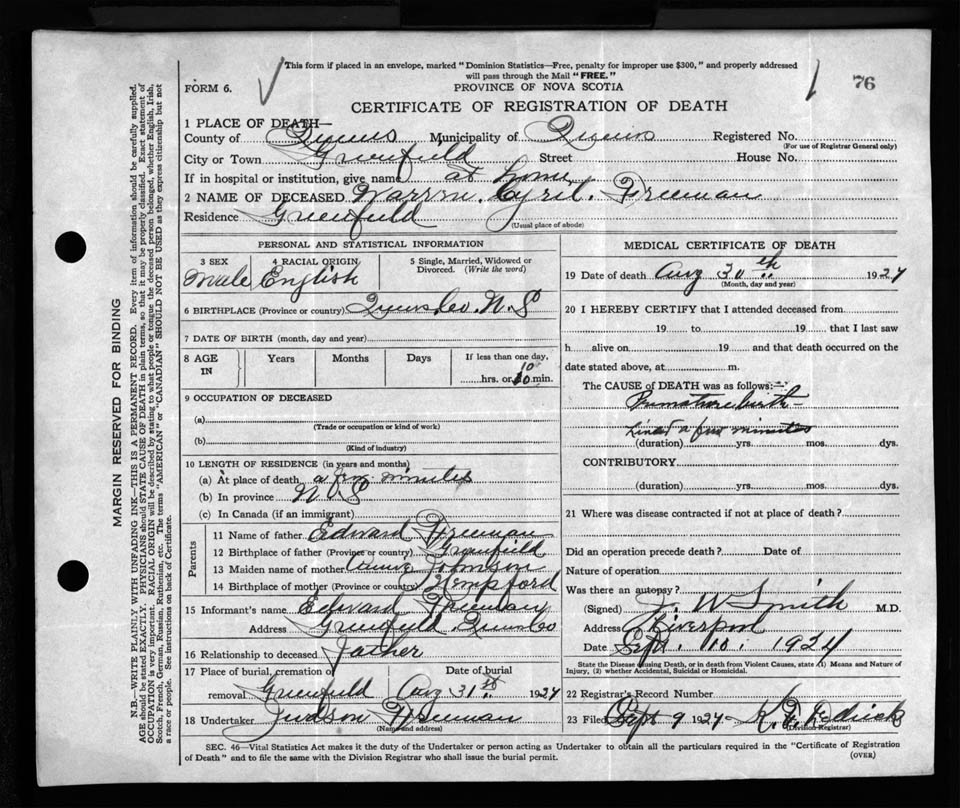 This form if placed in an envelope, marked "Dominion Statistics—Free, penalty for improper use $300," and properly addressed
will pass through the Mail "FREE."
FORM 6.
PROVINCE OF NOVA SCOTIA
76
CERTIFICATE OF REGISTRATION OF DEATH
1 PLACE OF DEATH—
County of Queens Municipality of Queens Registered No.
(For use of Registrar General only)
City or Town Greenfield Street House No.
If in hospital or institution, give name at home
2 NAME OF DECEASED Warren. Cyril. Freeman
Residence Greenfield
(Usual place of abode)
PERSONAL AND STATISTICAL INFORMATION
3 SEX 4 RACIAL ORIGIN 5 Single, Married, Widowed or
Divorced. (Write the word)
Male English
6 BIRTHPLACE (Province or country) Queens Co. N.S
7 DATE OF BIRTH (month, day and year)
8 AGE IN Years Months Days If less than one day,
10
hrs. or 10 min.
9 OCCUPATION OF DECEASED
(a)
(Trade or occupation or kind of work)
(b)
(Kind of industry)
10 LENGTH OF RESIDENCE (in years and months)
(a) At place of death a few minutes
(b) In province N S
(c) In Canada (if an immigrant)
Parents
11 Name of father Edward Freeman
12 Birthplace of father (Province or country) Greenfield
13 Maiden name of mother Johnson
14 Birthplace of mother (Province or country) Kempford
15 Informant's name Edward Freeman
Address Greenfield Queens Co
16 Relationship to deceased Father
17 Place of burial, cremation or Date of burial
removal Greenfield Aug 31st 1924
18 Undertaker Judson Freeman
(Name and address)
MEDICAL CERTIFICATE OF DEATH
19 Date of death Aug 30th 1924
(Month, day and year)
20 I HEREBY CERTIFY that I attended deceased from
19 to 19 that I last saw
h alive on 19 and that death occurred on the
date stated above, at m.
The CAUSE OF DEATH was as follows:—
Premature birth
Lived a few minutes
(duration) yrs. mos. dys.
CONTRIBUTORY
(duration) yrs. mos. dys.
21 Where was disease contracted if not at place of death?
Did an operation precede death? Date of
Nature of operation
Was there an autopsy?
(Signed) J. W Smith M.D.
Address Liverpool
Date Sept. 10. 1924
State the Disease causing Death, or in death from Violent Causes, state (1) Means and Nature of
Injury, (2) whether Accidental, Suicidal or Homicidal.
22 Registrar's Record Number
23 Filed Sept 9 1924
(Division Registrar)
SEC. 46—Vital Statistics Act makes it the duty of the Undertaker or person acting as Undertaker to obtain all the particulars required in the "Certificate of Registration
of Death" and to file the same with the Division Registrar who shall issue the burial permit.
(OVER)
MARGIN RESERVED FOR BINDING
N.B.—WRITE PLAINLY WITH UNFADING INK—THIS IS A PERMANENT RECORD. Every item of information should be carefully supplied.
AGE should be stated EXACTLY. PHYSICIANS should STATE CAUSE OF DEATH in plain terms, so that it may be properly classified. Exact statement of
OCCUPATION is very important. RACIAL ORIGIN will be described by stating to what people or tongue the deceased person belonged, whether English, Irish,
Scotch, French, German, Russian, Ruthenian, etc. The terms "AMERICAN" or "CANADIAN" SHOULD NOT BE USED as they express citizenship but not
a race or people. See instructions on back of Certificate.